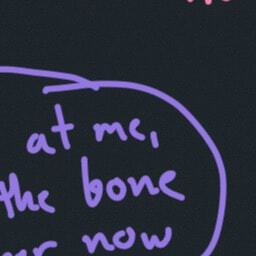 at me,
the bone
now